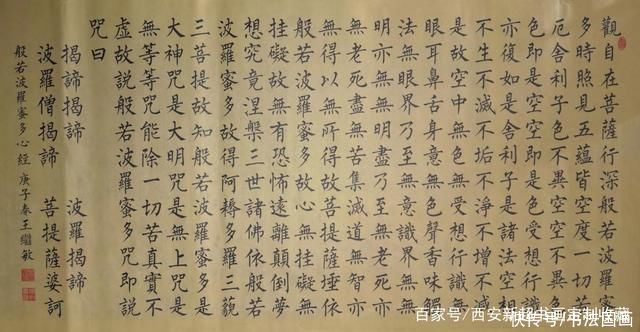 觀自在菩薩行深般若波羅蜜
多時照見五蘊皆空度一切苦
厄舍利子色不異空空不異色
色即是空空即是色受想行識
亦復如是舍利子是諸法空相
不生不滅不垢不淨不增不減
是故空中無色無受想行識無
眼耳鼻舌身意無色聲香味觸
法無眼界乃至無意識界無無
明亦無無明盡乃至無老死亦
無老死盡無苦集滅道無智亦
無得以無所得故菩提薩埵依
般若波羅蜜多故心無挂礙無
挂礙故無有恐怖遠離顛倒夢
想究竟涅槃三世諸佛依般若
波羅蜜多故得阿耨多羅三藐
三菩提故知般若波羅蜜多是
大神咒是大明咒是無上咒是
無等等咒能除一切苦真實不
虛故說般若波羅蜜多咒即說
咒曰
揭諦揭諦 波羅揭諦
波羅僧揭諦 菩提薩婆訶
般若波羅蜜多心經 庚子春王繼敏
百家号/西安新
快传号/书法国画